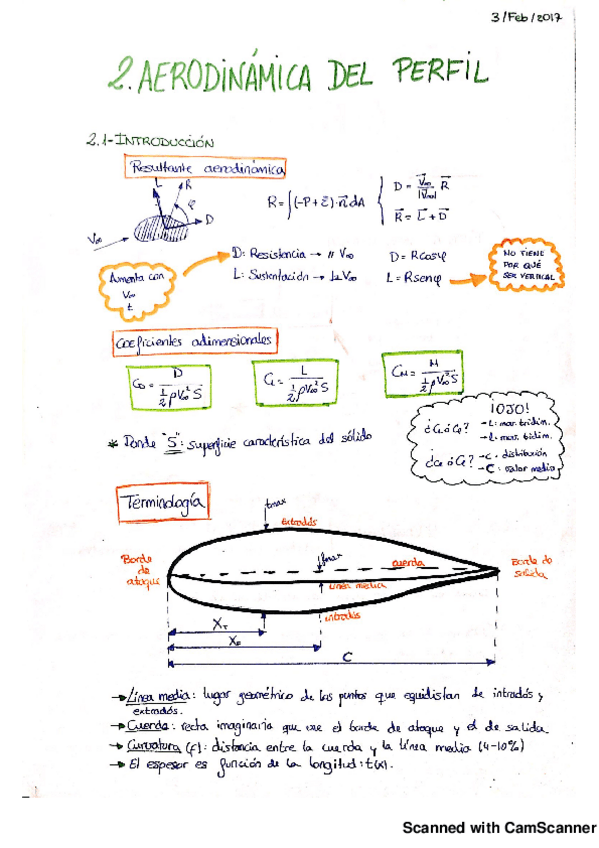 3/Feb/2017
2. AERODINÁMICA DEL PERFIL
2.1-INTRODUCCIÓN
Resultante aerodinámica
L
R
φ
D
V∞
R = ∫(-P+τ̄)·n̄ dA
D = V̄∞/|V∞| R̄
R̄ = L̄ + D̄
Aumenta con
V∞
t
D: Resistencia → // V∞
L: Sustentación → ⊥ V∞
D = Rcosφ
L = Rsenφ
NO TIENE
POR QUÉ
SER VERTICAL
Coeficientes adimensionales
C_D = D / ½ρV∞²S
C_L = L / ½ρV∞²S
C_M = M / ½ρV∞²S
* Donde "S": superficie característica del sólido
¡OJO!
-L: mar. tridim.
-l: mar. bidim.
- c. distribución
- C: valor medio
Terminología
tmax
extradós
Borde
de
ataque
fmax
cuerda
Borde de
salida
línea media
intradós
X_T
X_F
C
→ Línea media: lugar geométrico de los puntos que equidistan de intradós y
extradós.
→ Cuerda: recta imaginaria que une el borde de ataque y el de salida
→ Curvatura (f): distancia entre la cuerda y la línea media (4-10%)
→ El espesor es función de la longitud: t(x).
Scanned with CamScanner